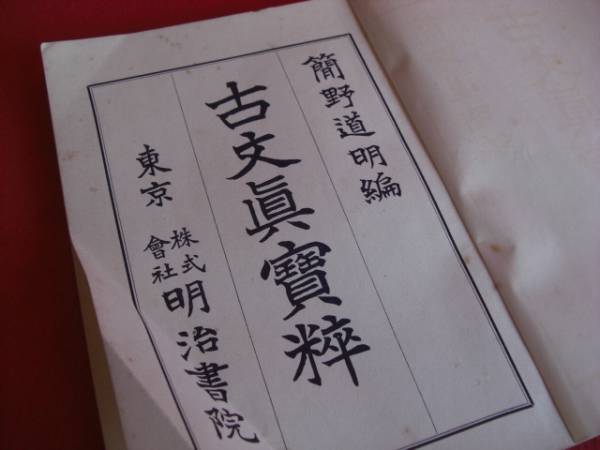 簡野道明編
古文眞寶粹
東京 株式會社 明治書院